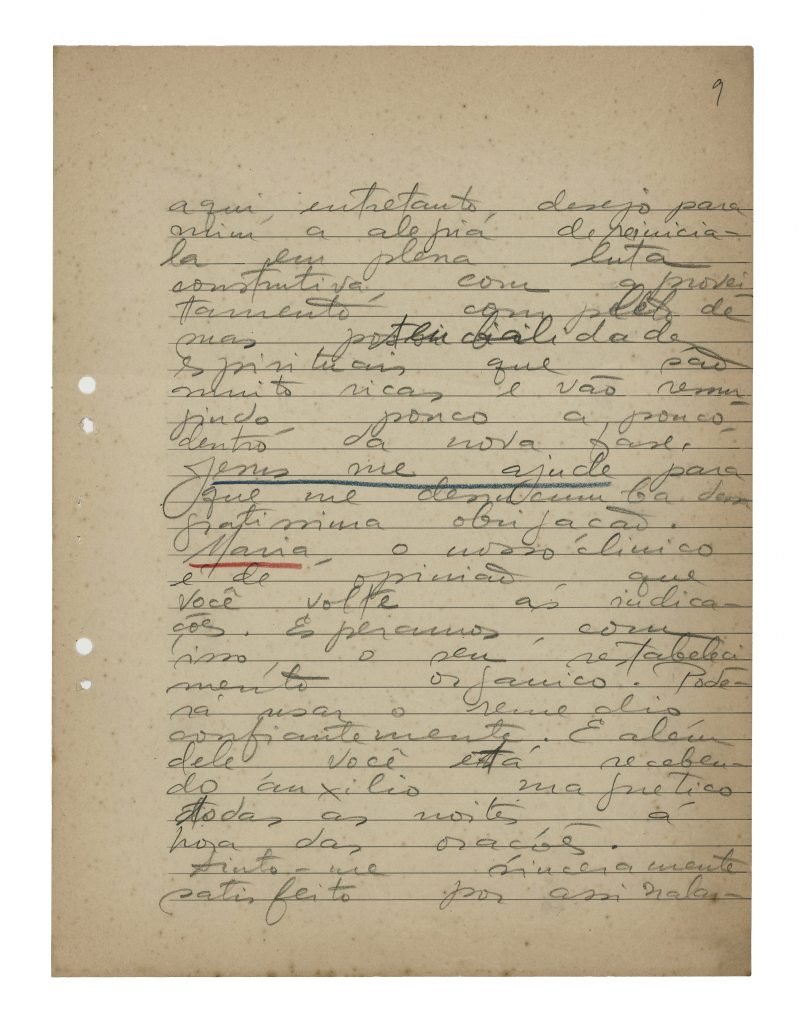 9
aqui entretanto, desejo para
mim a alegria de reinicia-
la em plena luta
construtiva, com aprovei
tamento completo de
mas potencialidade
espirituais que são
muito ricas e vão ressur
gindo, pouco a pouco,
dentro da nova fase.
Jesus me ajude para
que me desincumba dessa
gratissima obrigação.
Maria, o nosso clinico
é de opinião que
você volte ás indica-
ções. Esperamos, com
isso, o seu restabeleci
mento organico. Pode-
rá usar o remedio
confiantemente. E além
dele você está receben-
do auxilio magnetico
todas as noites á
hora das orações.
Sinto-me sinceramente
satisfeito por assinalar-